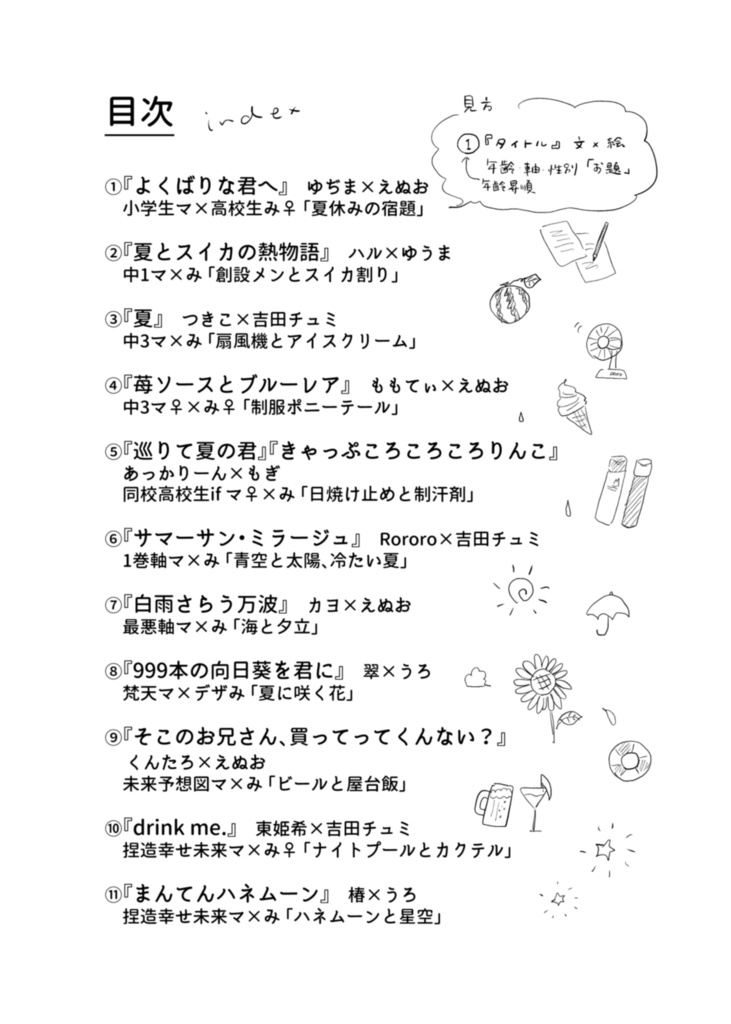 目次 index
見方
① 『タイトル』 文×絵
年齢・軸・性別「お題」
年齢昇順
①『よくばりな君へ』 ゆぢま×えぬお
小学生マ×高校生み♀「夏休みの宿題」
②『夏とスイカの熱物語』 ハル×ゆうま
中1マ×み「創設メンとスイカ割り」
③『夏』 つきこ×吉田チュミ
中3マ×み「扇風機とアイスクリーム」
④『苺ソースとブルーレア』 ももてぃ×えぬお
中3マ♀×み♀「制服ポニーテール」
⑤『巡りて夏の君』『きゃっぷころころころりんこ』
あっかりーん×もぎ
同校高校生if マ♀×み「日焼け止めと制汗剤」
⑥『サマーサン・ミラージュ』 Rororo×吉田チュミ
1巻軸マ×み「青空と太陽、冷たい夏」
⑦『白雨さらう万波』 カヨ×えぬお
最悪軸マ×み「海と夕立」
⑧『999本の向日葵を君に』 翠×うろ
梵天マ×デザみ「夏に咲く花」
⑨『そこのお兄さん、買ってってくんない？』
くんたろ×えぬお
未来予想図マ×み「ビールと屋台飯」
⑩『drink me.』 東姫希×吉田チュミ
捏造幸せ未来マ×み♀「ナイトプールとカクテル」
⑪『まんてんハネムーン』 椿×うろ
捏造幸せ未来マ×み「ハネムーンと星空」